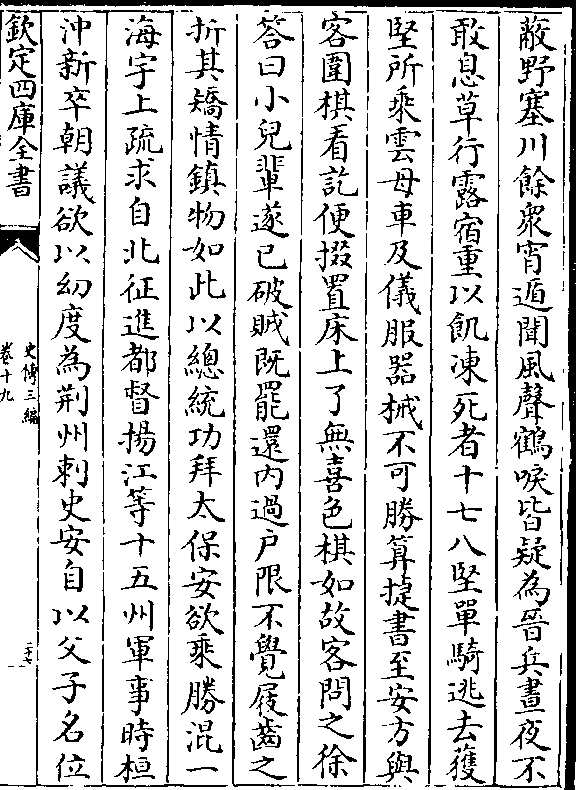 蔽野塞川餘衆宵遁聞風聲鶴唳皆疑為晉兵晝夜不
敢息草行露宿重以飢凍死者十七八堅單騎逃去獲
堅所乘雲母車及儀服器械不可勝算捷書至安方與
客圍棋看訖便掇置床上了無喜色棋如故客問之徐
答曰小兒輩遂已破賊既罷還内過户限不覺屐齒之
折其矯情鎮物如此以總統功拜太保安欲乘勝混一
海宇上疏求自北征進都督揚江等十五州軍事時桓
沖新卒朝議欲以幼度為荆州刺史安自以父子名位
欽定四庫全書
史傳三編
卷十九